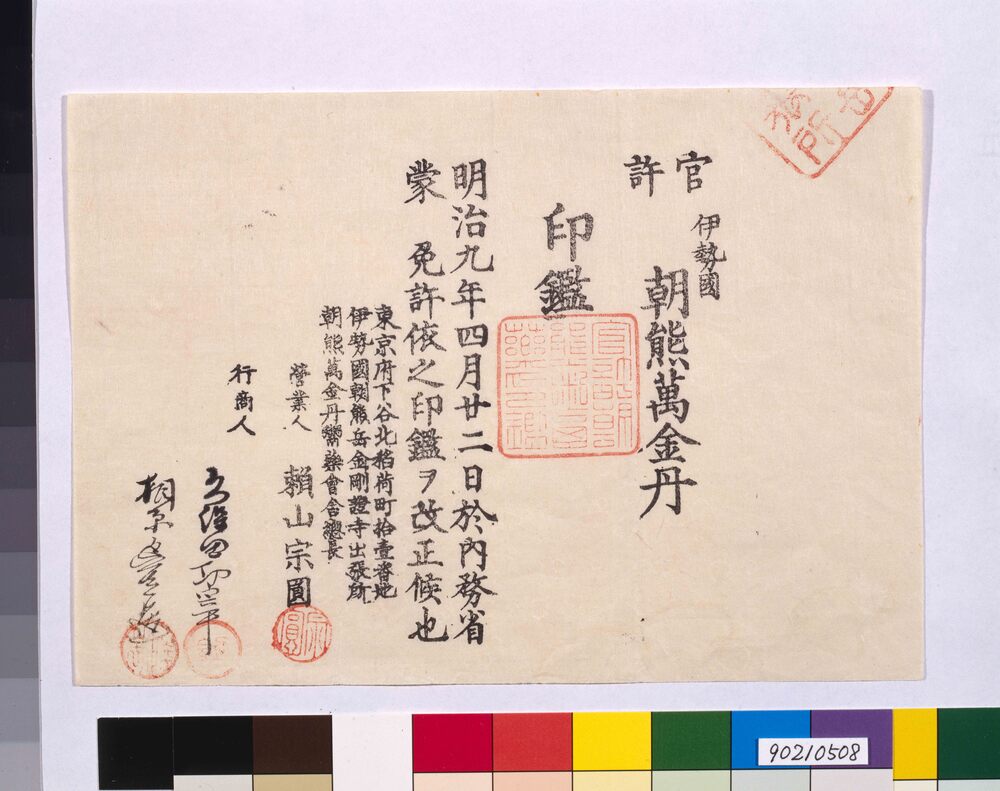 官許
伊勢國
朝熊萬金丹
印鑑
明治九年四月廿二日於内務省
蒙 免許依之印鑑ヲ改正候也
東京府下谷北稲荷町拾壹番地
伊勢國朝熊岳金剛證寺出張所
朝熊萬金丹鬻藥會舎總長
營業人 賴山宗圓
行商人
90210508